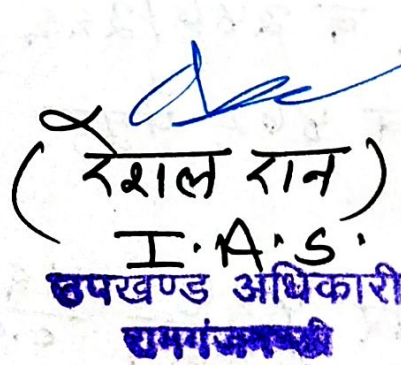 ( रेशल रान )
I.A.S.
उपखण्ड अधिकारी
रामगंजमण्डी